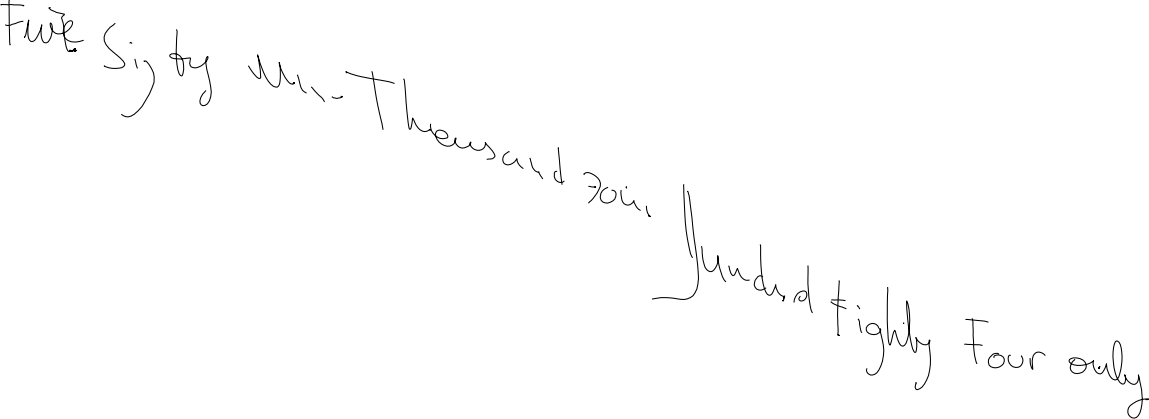 Five Sixty Nine Thousand Four Hundred Eighty Four only